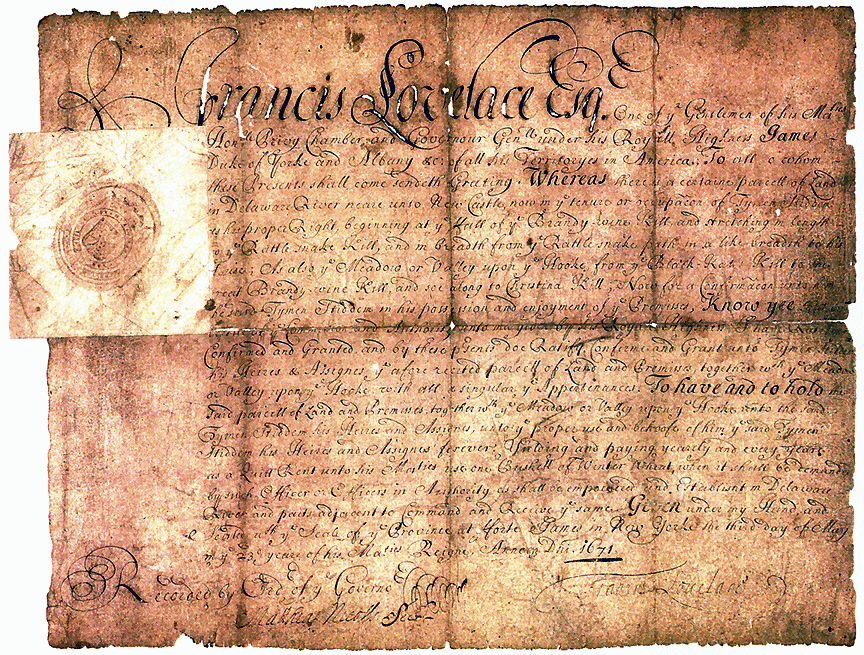 Francis Lovelace Esq.
One of yͤ Gentlemen of his Maͭⁱᵉˢ
Honᵇˡᵉ Privy Chamber, and Governour Genˡˡ under his Royall Highness James
Duke of Yorke and Albany &c: of all his Territoryes in America; To all
these Presents shall come sendeth Greeting. Whereas there is a certaine parcell of Land
in Delaware River neare unto New Castle, now in yͤ tenure or occupacon of Tymen Stiddem
as his proper Right, beginning at yͤ of yͤ Brandy-wine Kill, and stretching in Length
to yͤ Rattle snake Kill, and in breadth from yͤ Rattle snake path in a like breadth to
As also yͤ Meadow or Valley upon yͤ Hooke, from yͤ Kill to
Brandy-wine Kill and soe along to Christina Kill; Now for a Confirmacon unto him
yͤ said Tymen Stiddem in his possession and enjoyment of yͤ Premises, Know yee
and Authority unto me given by his Royall Highness I have
Confirmed and Granted and by these presents doe Ratify, Confirme and Grant unto Tymen
his Heires & Assignes yͤ afore recited parcell of Land and Premises, together wᵗʰ yͤ Meadow
or Valley upon yͤ Hooke with all & singular yͤ Appurtenances: To have and to hold the
said parcell of Land and Premisses, together wᵗʰ yͤ Meadow or Valley upon yͤ Hooke unto the said
Tymen Stiddem his Heires and Assignes, unto yͤ proper use and behoofe of him yͤ said Tymen
Stiddem his Heires and Assignes forever, Yielding and paying yearely and every yeare
as a Quitt Rent unto his Maties use one Bushell of Winter Wheat, when it shall be demanded
by such Officer or Officers in Authority as shall be empowered and establisht in Delaware
River and parts adjacent to Command and Receive yͤ same. Given under my Hand, and
Seale with yͤ Seale of yͤ Province at Forte James in New Yorke the third day of May
in yͤ 23ᵈ yeare of his Maties Reigne, Annoq Dni. 1671.
Recorded by Ord. of yͤ Governoʳ
Matthias Nicolls Secr
Francis Lovelace